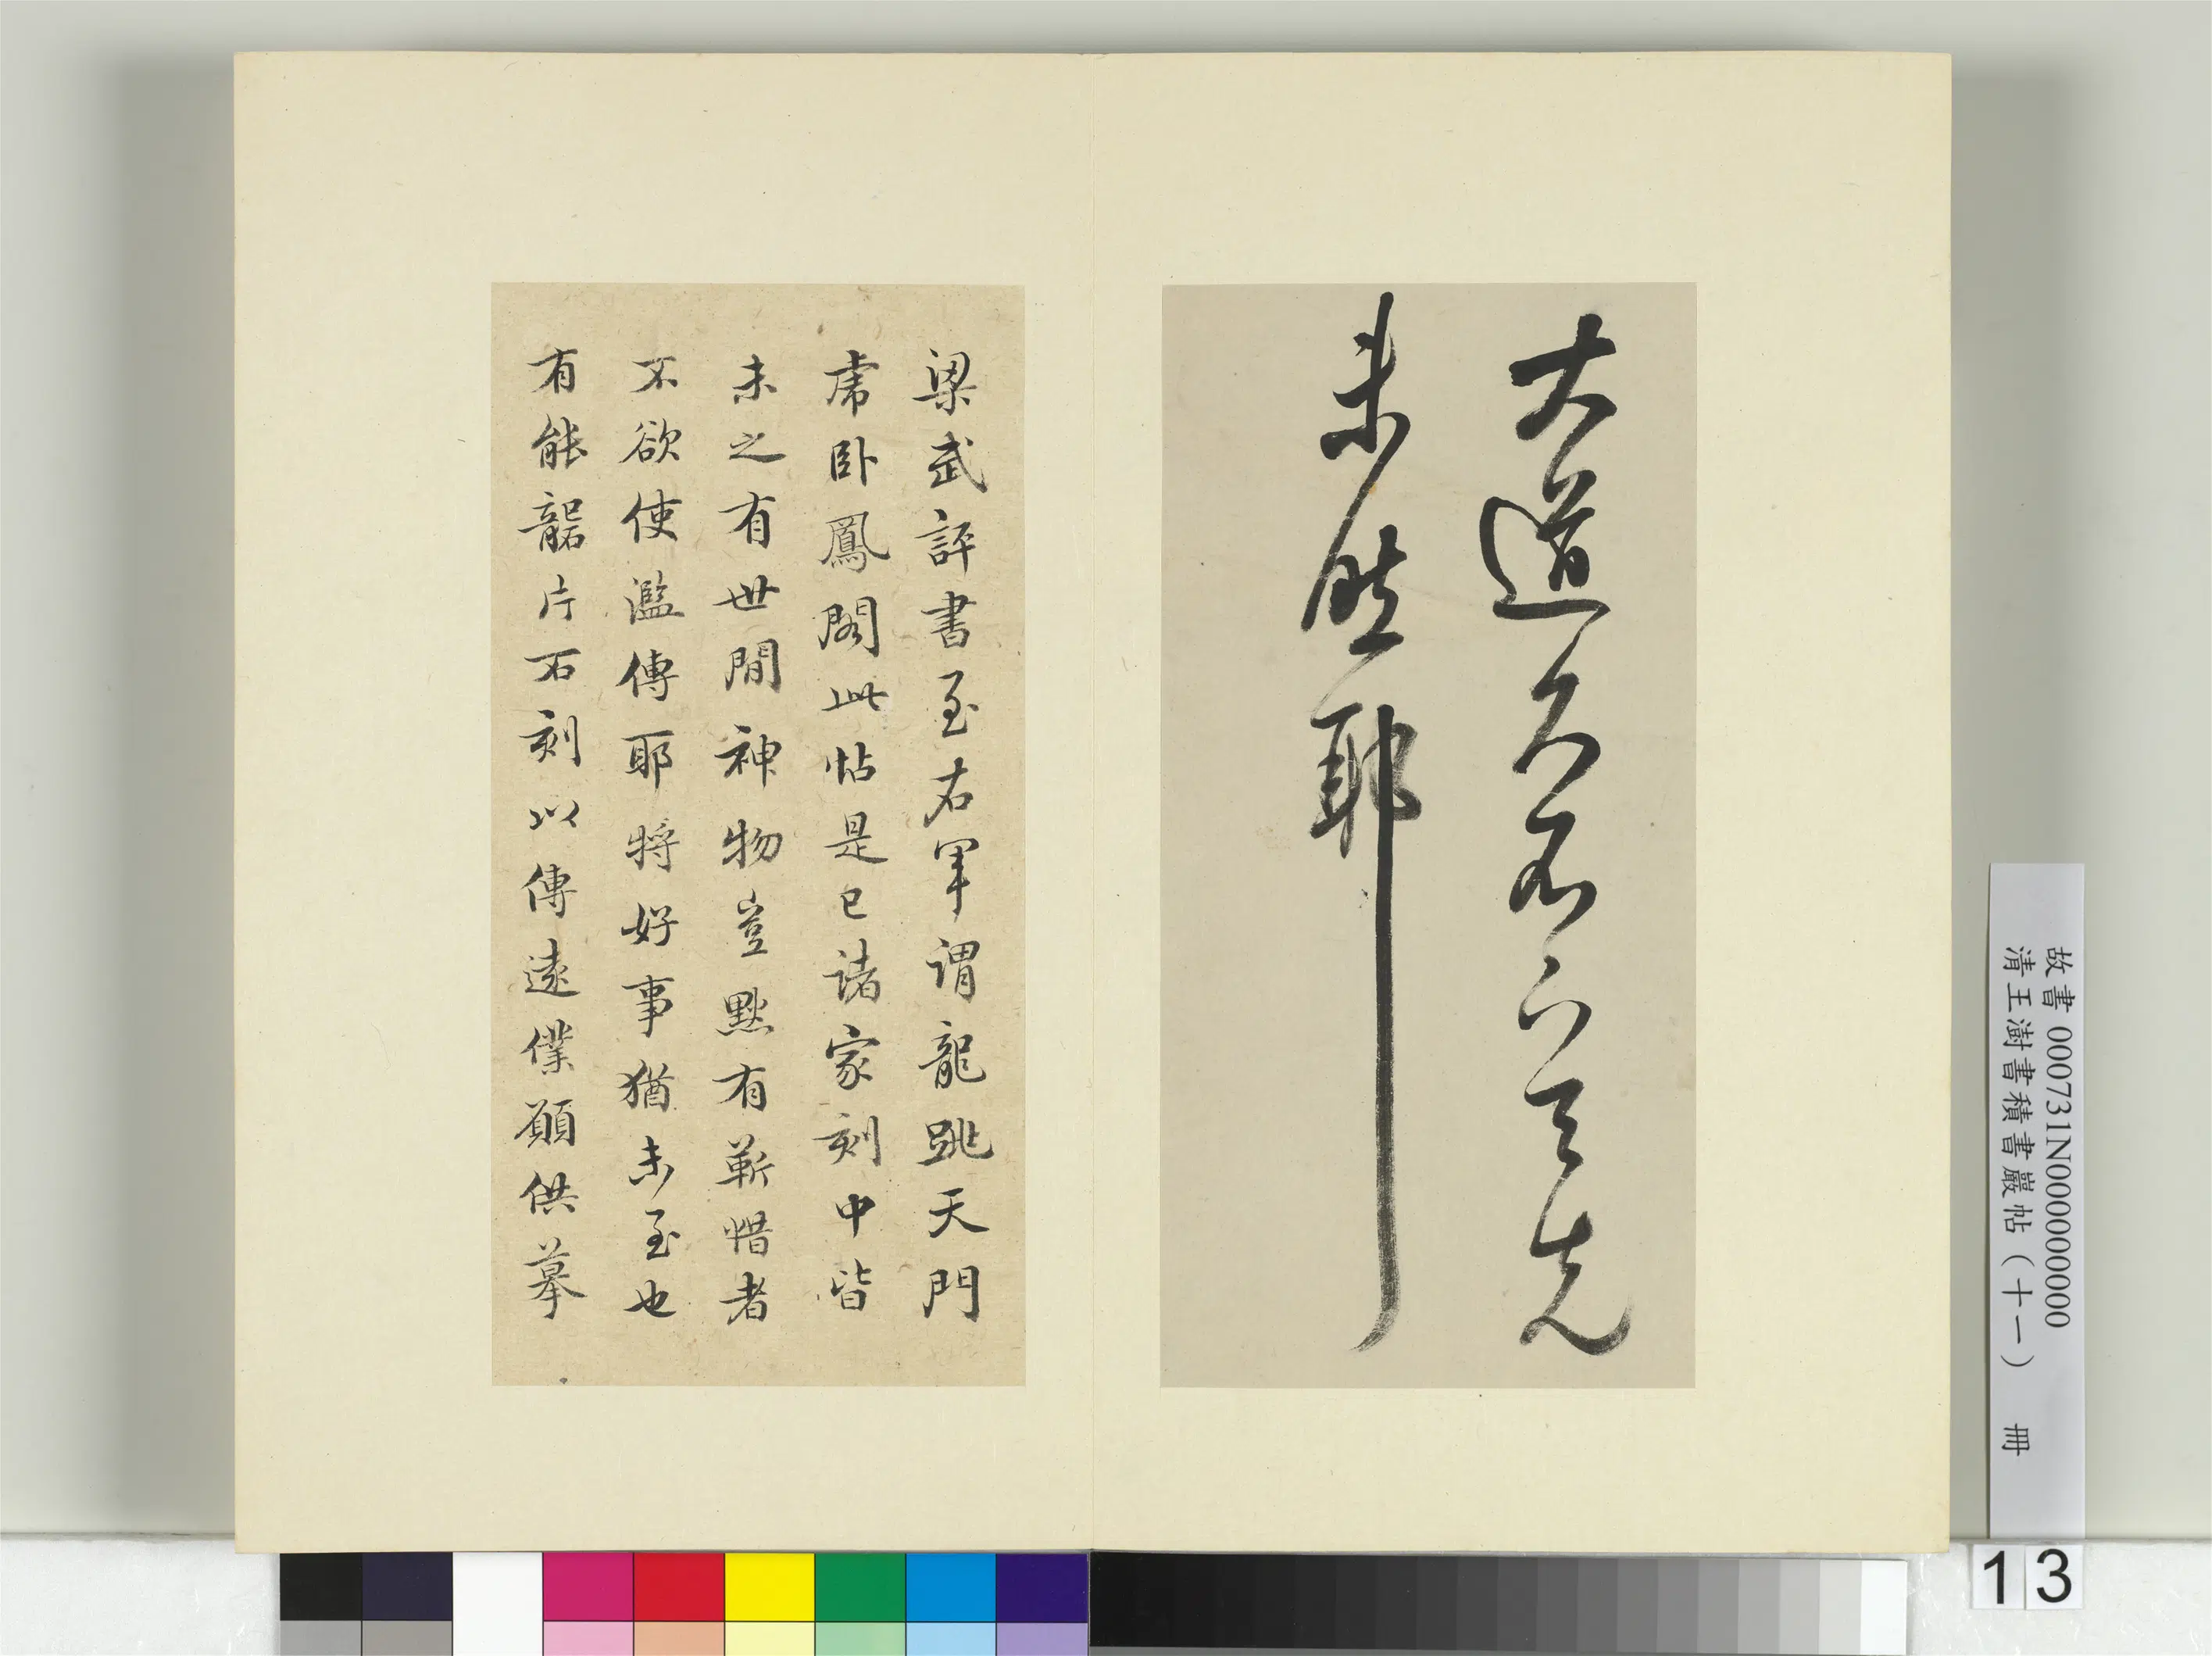 大道久不下与先
未然耶
梁武評書至右軍謂龍跳天門
虎臥鳳閣此帖是已諸家刻中皆
未之有世間神物豈默有蘄惜者
不欲使濫傳耶將好事猶未至也
有能礱片石刻以傳遠僕願供摹
故書 000731N000000000
清王澍書積書巖帖（十一） 冊
13